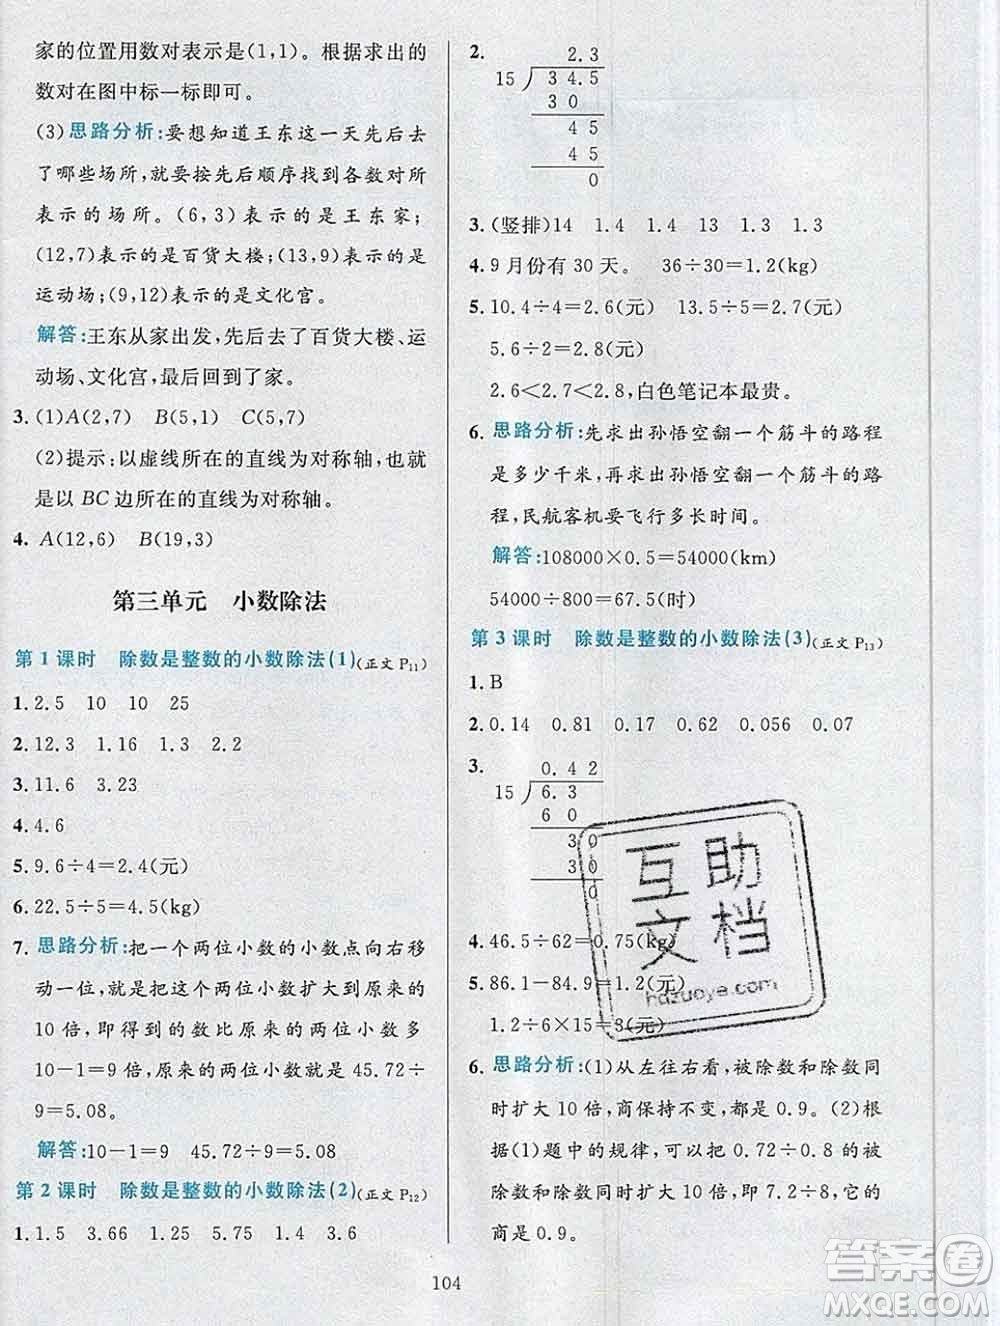 家的位置用数对表示是(1,1)。根据求出的
数对在图中标一标即可。
(3)思路分析:要想知道王东这一天先后去
了哪些场所,就要按先后顺序找到各数对所
表示的场所。(6,3)表示的是王东家;
(12,7)表示的是百货大楼;(13,9)表示的是
运动场;(9,12)表示的是文化宫。
解答:王东从家出发,先后去了百货大楼、运
动场、文化宫,最后回到了家。
3. (1)A(2,7) B(5,1) C(5,7)
(2)提示:以虚线所在的直线为对称轴,也就
是以 BC 边所在的直线为对称轴。
4. A(12,6) B(19,3)
第三单元 小数除法
第 1 课时 除数是整数的小数除法(1)(正文 P11)
1. 2.5 10 10 25
2. 12.3 1.16 1.3 2.2
3. 11.6 3.23
4. 4.6
5. 9.6÷4=2.4(元)
6. 22.5÷5=4.5(kg)
7. 思路分析:把一个两位小数的小数点向右移
动一位,就是把这个两位小数扩大到原来的
10 倍,即得到的数比原来的两位小数多
10-1=9 倍,所以原来的两位小数就是 45.72÷
9=5.08。
解答:10-1=9 45.72÷9=5.08
第 2 课时 除数是整数的小数除法(2)(正文 P12)
1. 1.5 3.66 1.25 5.75 1.4 3.6
2.
2.3
15 34.5
30
45
45
0
3. (竖排)14 1.4 1.4 13 1.3 1.3
4. 9 月份有 30 天。 36÷30=1.2(kg)
5. 10.4÷4=2.6(元) 13.5÷5=2.7(元)
5.6÷2=2.8(元)
2.6<2.7<2.8,白色笔记本最贵。
6. 思路分析:先求出孙悟空翻一个筋斗的路程
是多少千米,再求出孙悟空翻一个筋斗的路
程,民航客机要飞行多长时间。
解答:108000×0.5=54000(km)
54000÷800=67.5(时)
第 3 课时 除数是整数的小数除法(3)(正文 P13)
1. B
2. 0.14 0.81 0.17 0.62 0.056 0.07
3.
0.42
15 6.3
60
30
30
0
4. 46.5÷62=0.75(kg)
5. 86.1-84.9=1.2(元)
1.2÷6×15=3(元)
6. 思路分析:(1)从左往右看,被除数和除数同
时扩大 10 倍,商保持不变,都是 0.9。(2)根
据(1)题中的规律,可以把 0.72÷0.8 的被
除数和除数同时扩大 10 倍,即 7.2÷8,它的
商是 0.9。
互助
文档
hdzuoye.com
104
答案圈
MXQE.COM